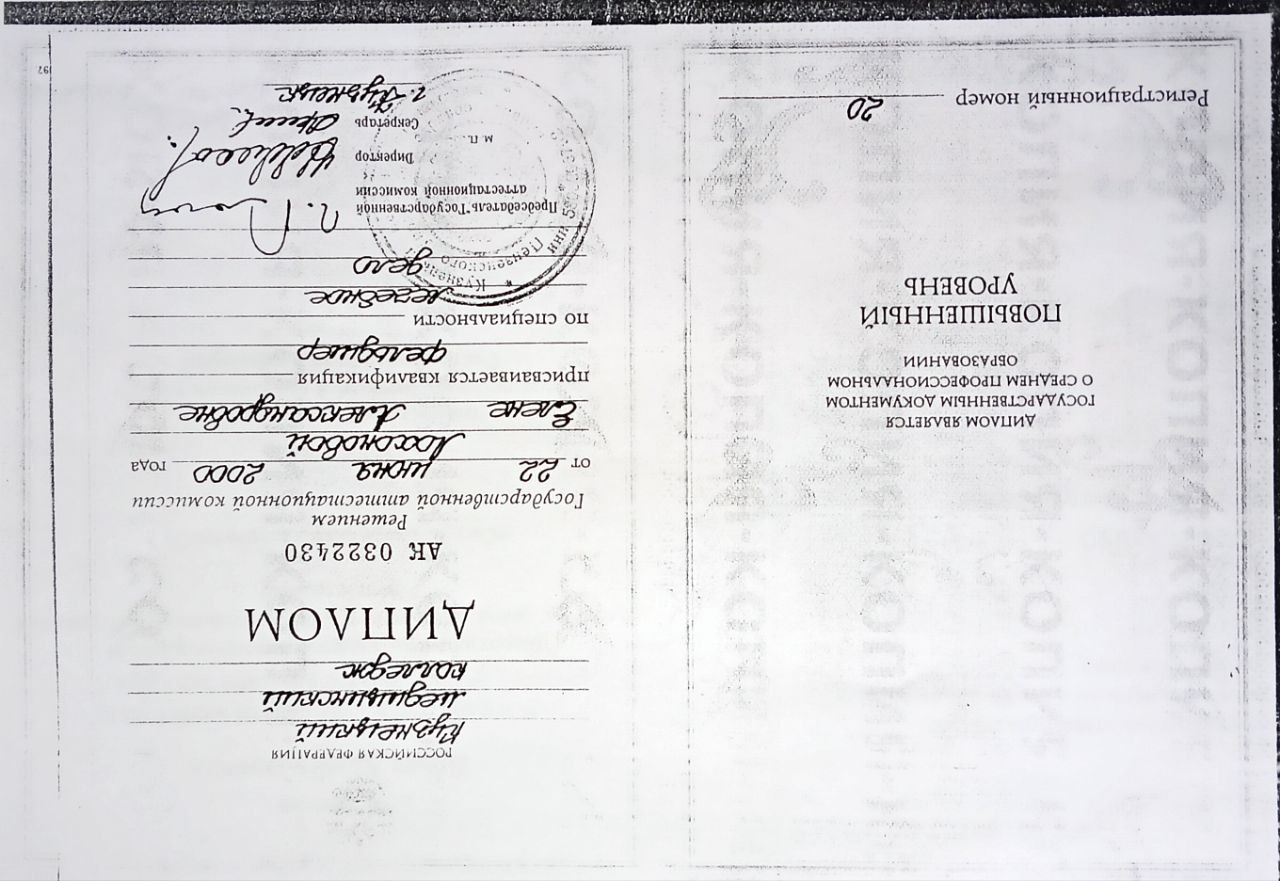 ДИПЛОМ ЯВЛЯЕТСЯ
ГОСУДАРСТВЕННЫМ ДОКУМЕНТОМ
О СРЕДНЕМ ПРОФЕССИОНАЛЬНОМ
ОБРАЗОВАНИИ
ПОВЫШЕННЫЙ
УРОВЕНЬ
Регистрационный номер 20
РОССИЙСКАЯ ФЕДЕРАЦИЯ
Кузнецкий
медицинский
колледж
ДИПЛОМ
АК 0322430
Решением
Государственной аттестационной комиссии
от 22 июня 2000 года
Лосоновой
Елене Александровне
присваивается квалификация
фельдшер
по специальности
лечебное
дело
Председатель Государственной
аттестационной комиссии
Директор
Секретарь
М.П.
г. Кузнецк